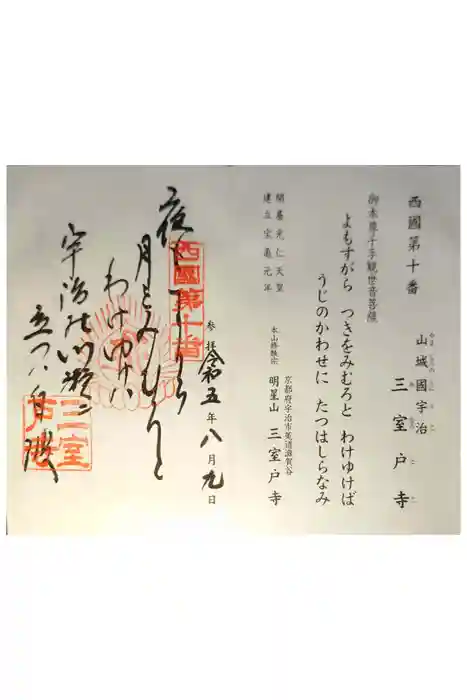 西國第十番
山城國宇治
三室戸寺
御本尊千手観世音菩薩
よもすがら つきをみむろと わけゆけば
うじのかわせに たつはしらなみ
開基光仁天皇
建立宝亀元年
本山修験宗
京都府宇治市莵道滋賀谷
明星山 三室戸寺
参拝 令和五年八月九日
西國第十番
夜もすから
月をみむろと
わけゆけハ
宇治の川瀬に
立つハ白波